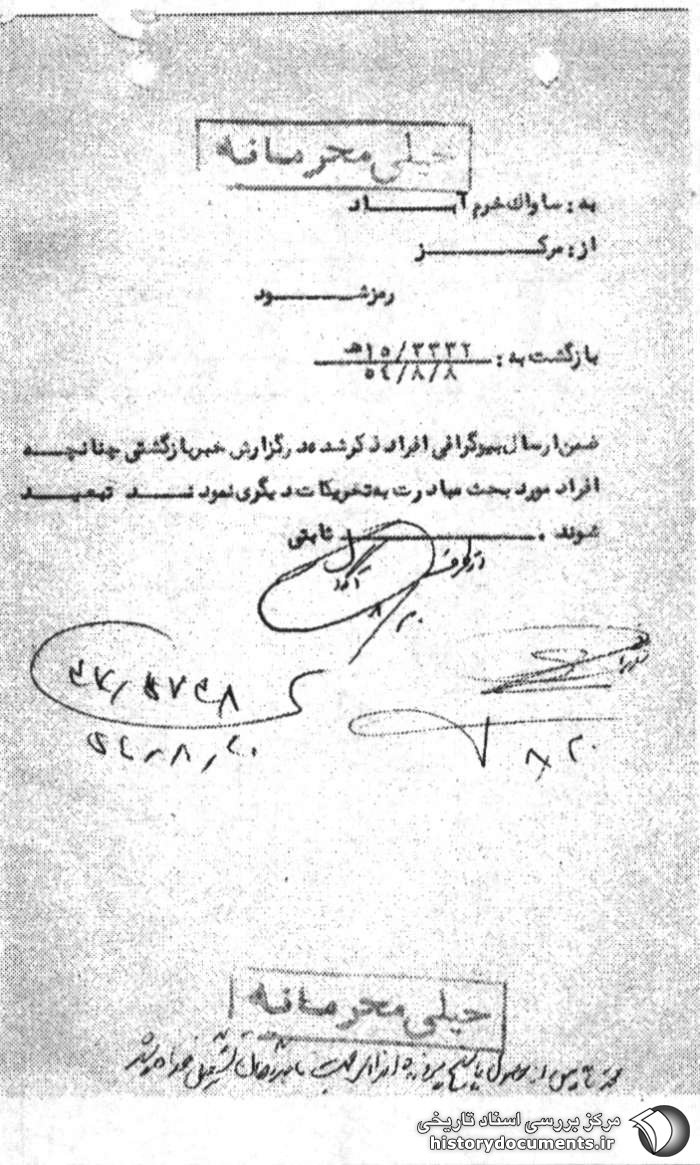 خیلی محرمانه
به : ساواک خرم آباد
از : مرکز
رمز شود
بازگشت به : ۱۵/۳۳۳۲ هـ
۵۴/۸/۸
ضمن ارسال بیوگرافی افراد ذکر شده در گزارش خبر بازگشتی چنانچه
افراد مورد بحث مبادرت به تحریکات دیگری نمودند تبعید
شوند . ثابتی
از طرف
۵۴/۸/۲۰
۸ ۲۰
خیلی محرمانه
پس از وصول پاسخ پرونده افراد جهت
مرکز بررسی اسناد تاریخی
historydocuments.ir